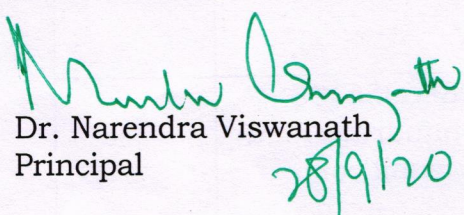 Dr. Narendra Viswanath
Principal
28/9/20